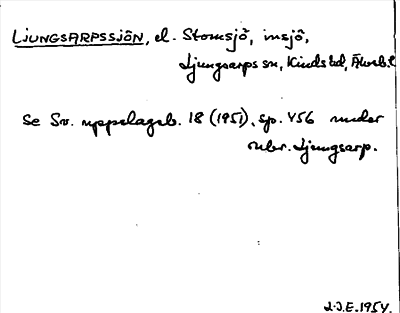 LJUNGSARPSSJÖN, el. Stomsjö, insjö,
Ljungsarps sn, Kinds hd, Älvsb. l
Se Sv. uppslagsb. 18 (1951), sp. 456 under
rubr. Ljungsarp.
J.I.E. 1954.